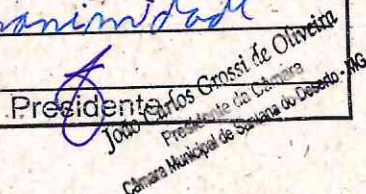 Presidente
João Carlos Grossi de Oliveira
Presidente da Câmara
Câmara Municipal de Santana do Deserto - MG